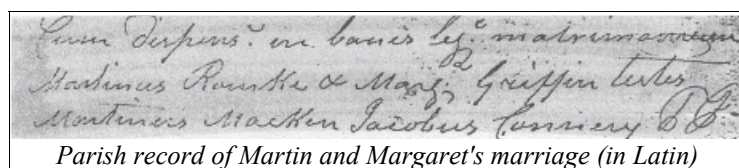 Cum dispens.e in banis leg.e matrimonium
Martinus Rourke & Marg. Griffin testes
Martinus Macken Jacobus Connery
Parish record of Martin and Margaret's marriage (in Latin)